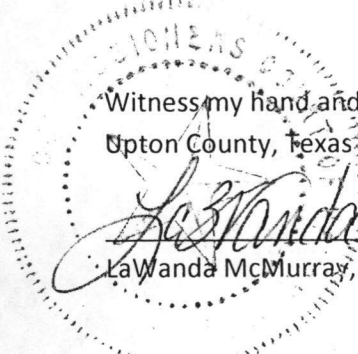 Witness my hand and
Upton County, Texas
LaWanda
LaWanda McMurray,